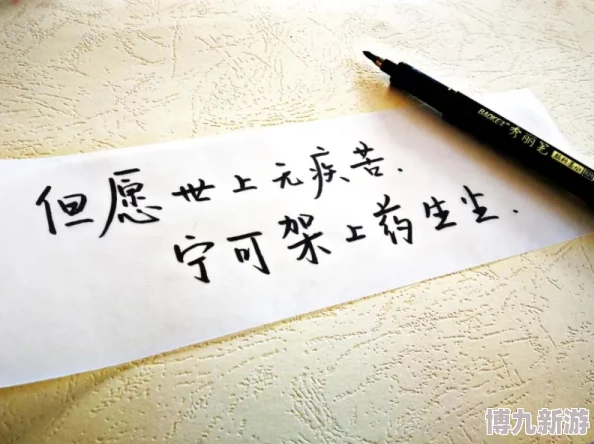 但愿世上无疾苦.
宁可架上药生尘.
BAOKE
秀丽笔
博九新游